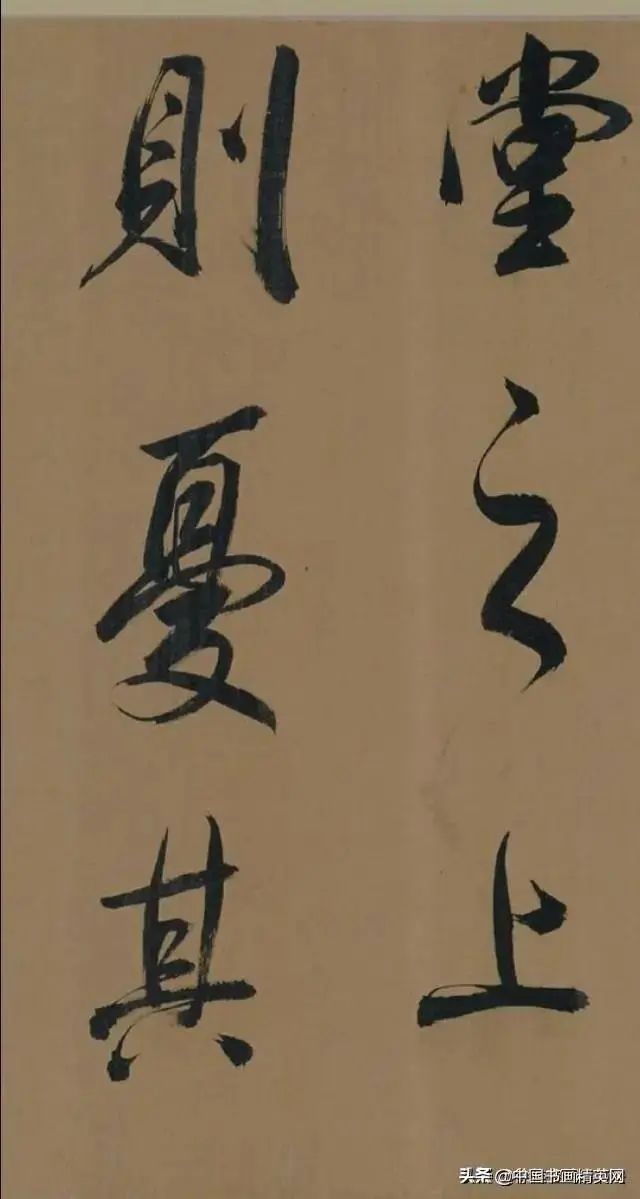 堂之上
則憂其
头条 @中国书画精英网